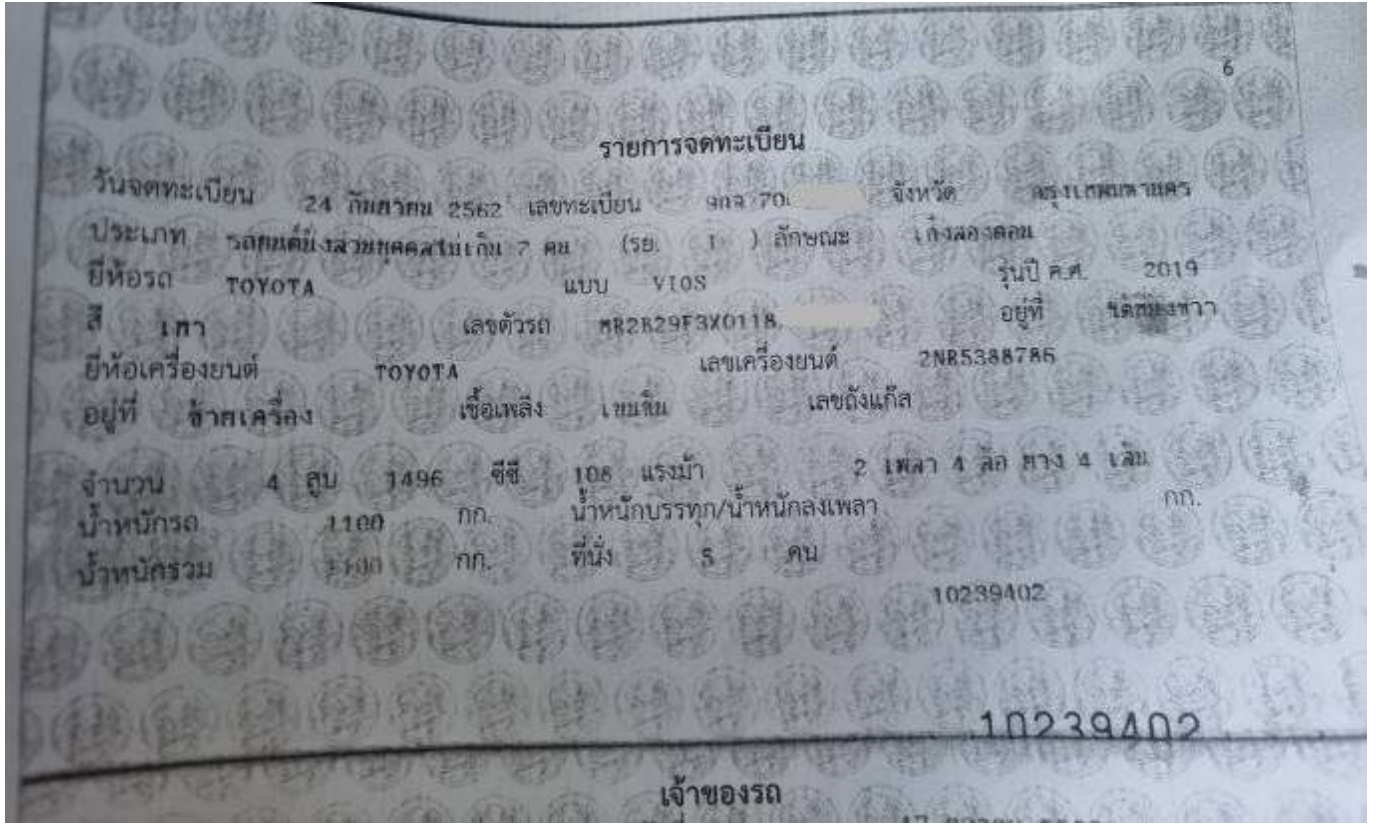 6
รายการจดทะเบียน
วันจดทะเบียน 24 กันยายน 2562 เลขทะเบียน 70 จังหวัด กรุงเทพมหานคร
ประเภท รถยนต์นั่งส่วนบุคคลไม่เกิน 7 คน (รย. 1 ) ลักษณะ เก๋งสองตอน
ยี่ห้อรถ TOYOTA แบบ VIOS รุ่นปี ค.ศ. 2019
สี เทา เลขตัวรถ MR2B29F3X0118 อยู่ที่
ยี่ห้อเครื่องยนต์ TOYOTA เลขเครื่องยนต์ 2NR5388786
อยู่ที่ ซ้ายเครื่อง เชื้อเพลิง เบนซิน เลขถังแก๊ส
จำนวน 4 สูบ 1496 ซีซี 108 แรงม้า 2 เพลา 4 ล้อ ยาง 4 เส้น
น้ำหนักรถ 1100 กก. น้ำหนักบรรทุก/น้ำหนักลงเพลา กก.
น้ำหนักรวม 1100 กก. ที่นั่ง 5 คน
10239402
10239402
เจ้าของรถ